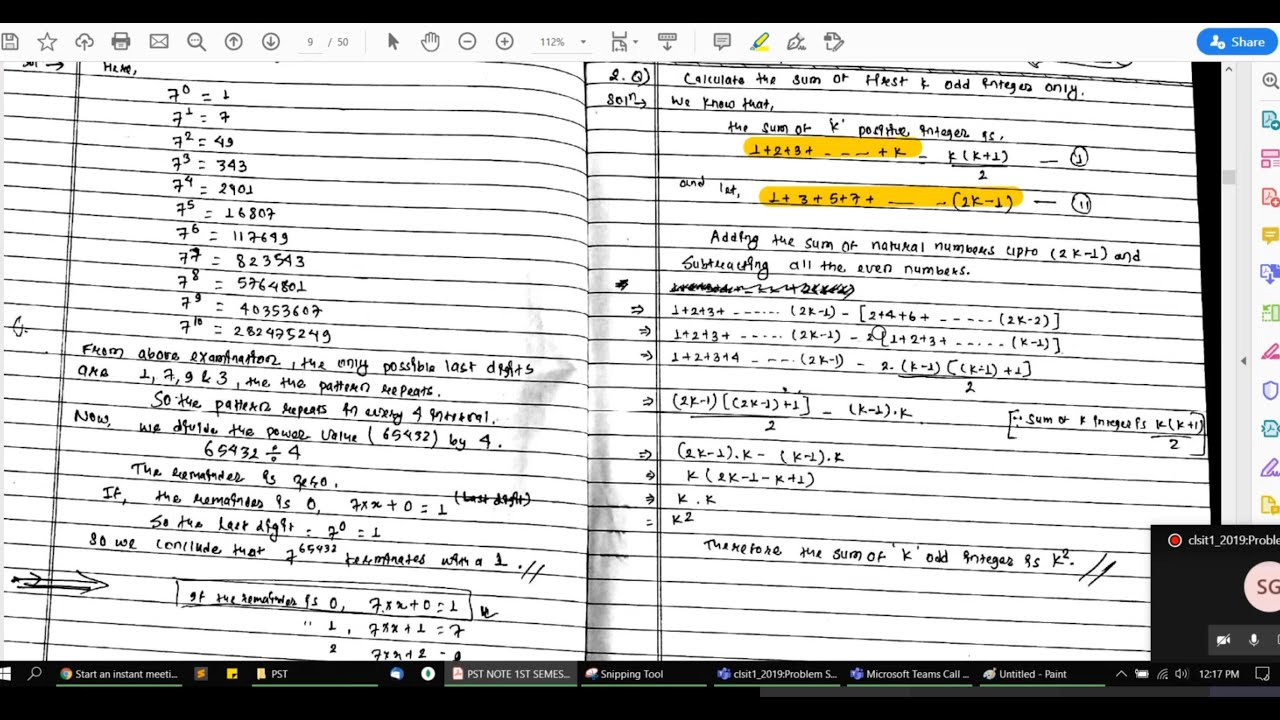 9 / 50
112%
Share
Here,
7^0 = 1
7^1 = 7
7^2 = 49
7^3 = 343
7^4 = 2901
7^5 = 16807
7^6 = 117649
7^7 = 823543
7^8 = 5764801
7^9 = 40353607
7^10 = 282475249
From above examination, the only possible last digits
are 1, 7, 9 & 3, the the pattern repeats.
So the pattern repeats in every 4 interval.
Now, we divide the power value (65432) by 4.
65432 ÷ 4
The remainder is zero.
If, the remainder is 0, 7xx + 0 = 1 (Last digit)
So the last digit = 7^0 = 1
So we conclude that 7^65432 terminates with a 1.//
If the remainder is 0, 7xx + 0 = 1
" 1, 7xx + 1 = 7
2 7xx + 2 = 9
2. Q) Calculate the sum of first k odd integer only.
Sol^n → We know that,
the sum of 'k' positive integer is,
1+2+3+ ---- + k = k(k+1)/2 — (i)
and let, 1+3+5+7+ — - - (2k-1) — (ii)
Adding the sum of natural numbers upto (2k-1) and
Subtracting all the even numbers.
⇒ 1+2+3+ ...... (2k-1) - [2+4+6+ ...... (2k-2)]
⇒ 1+2+3+ ..... (2k-1) - 2[1+2+3+ ..... (k-1)]
⇒ 1+2+3+4 - ---- (2k-1) - 2. (k-1)[(k-1)+1]/2
⇒ (2k-1)[(2k-1)+1]/2 - (k-1).k [∵ Sum of k integer is k(k+1)/2
⇒ (2k-1).k - (k-1).k
⇒ k(2k-1-k+1)
⇒ k.k
= k^2
Therefore the sum of 'k' odd integer is k^2.//
clsit1_2019:Proble
SG
Start an instant meeti...
PST
PST NOTE 1ST SEMES...
Snipping Tool
clsit1_2019:Problem S...
Microsoft Teams Call ...
Untitled - Paint
12:17 PM